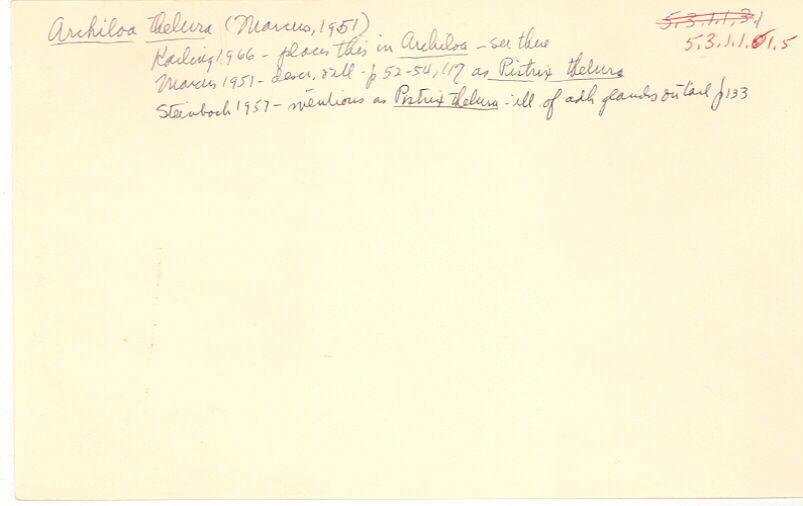 Archiloa thelura (Marcus, 1951)
5.3.1.1.3.1
5.3.1.1.01.5
Karling 1966 - places this in Archiloa - see there
Marcus 1951 - descr. & ill - p 52-54, 117 as Pistrix thelura
Steinbock 1957 - mentions as Pistrix thelura - ill. of adh glands on tail p 133